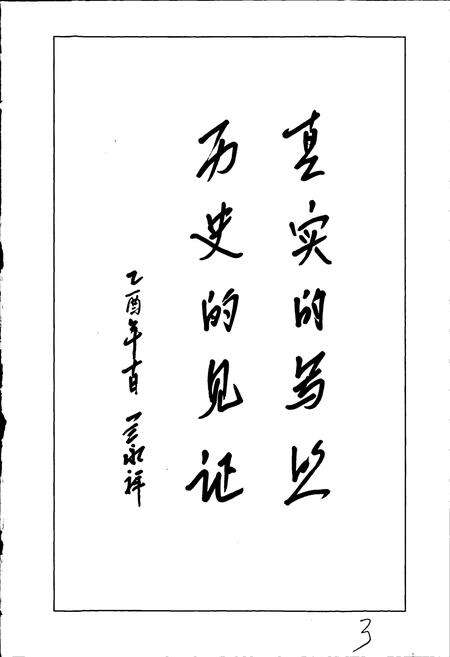 真实的写照
历史的见证
乙酉年十月 兰永祥
3